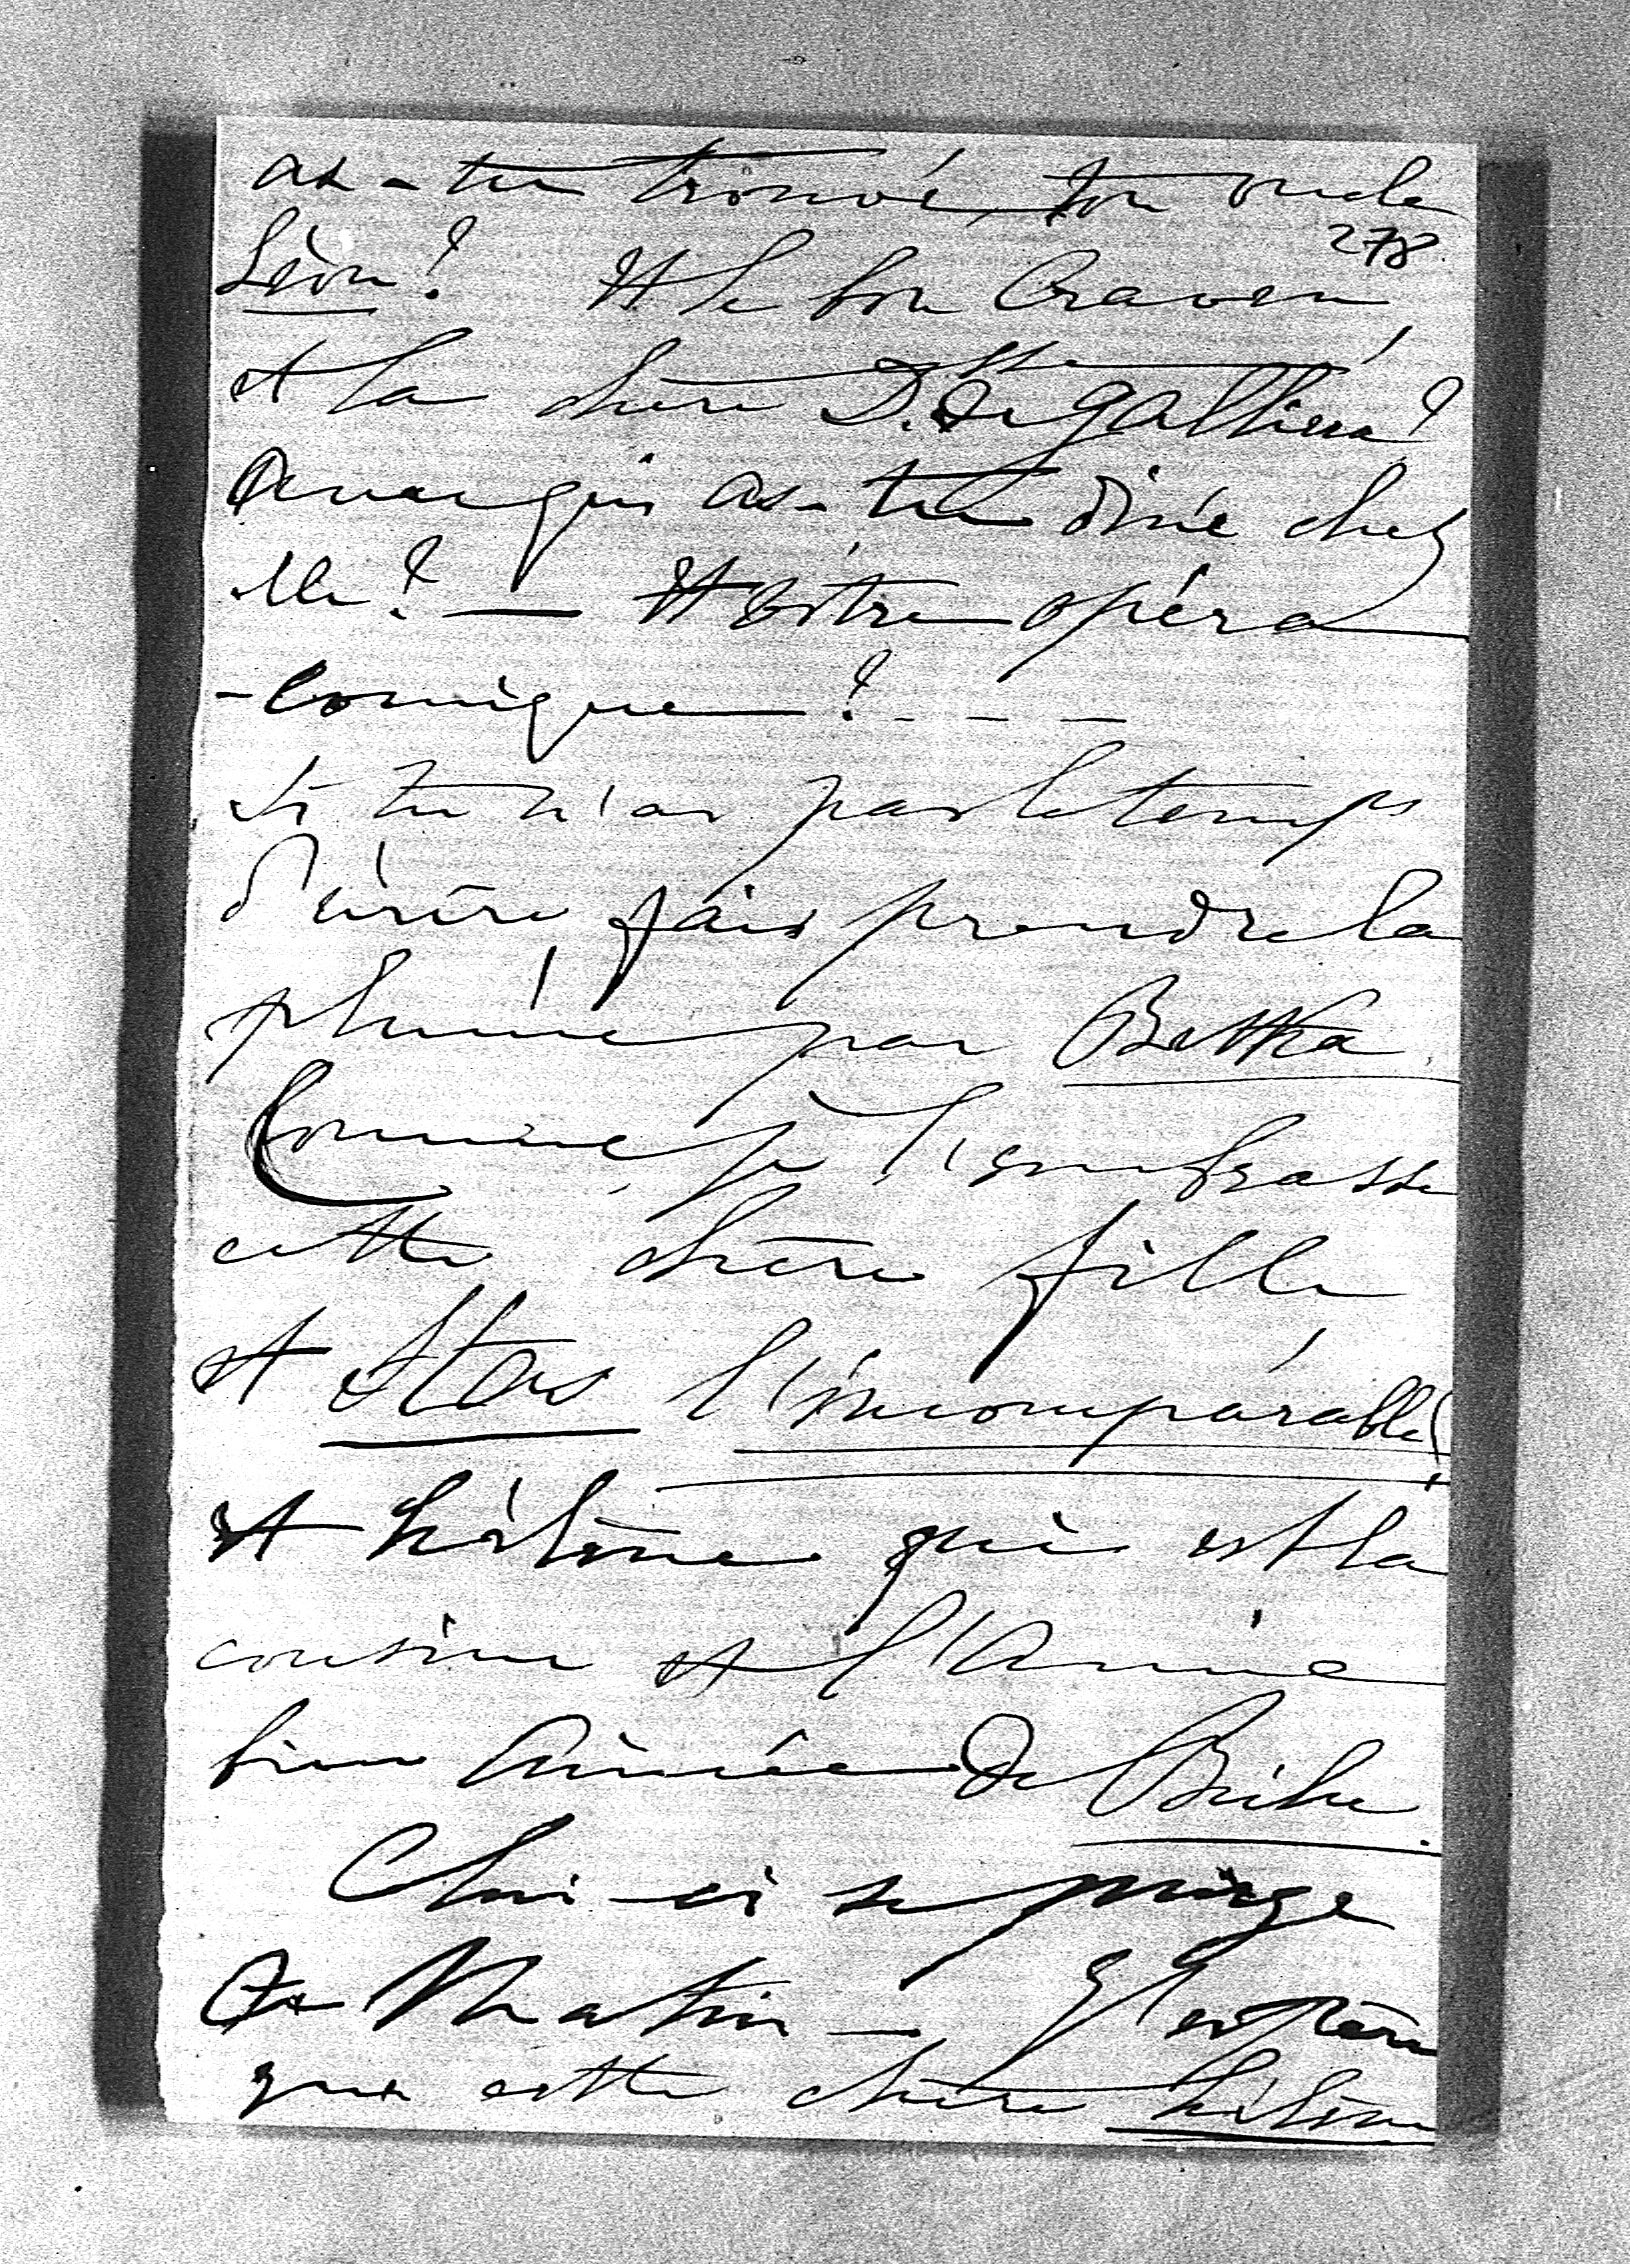 as-tu trouvé ton oncle
278
Léon? Et le bon Craven,
et la chère D.sse de Galliera?
Avec qui as-tu dîné chez
elle? — Et votre opéra
-comique? - - -
Si tu n'as pas le temps
d'écrire, fais prendre la
plume par Bethka.
Comme je l'embrasse
cette chère fille
et Stas l'incomparable!
Et Hélène qui est la
cousine et l'Amie
bien Aimée de Bibi.
Celui-ci se purge
ce Matin — J'espère
que cette chère Hélène